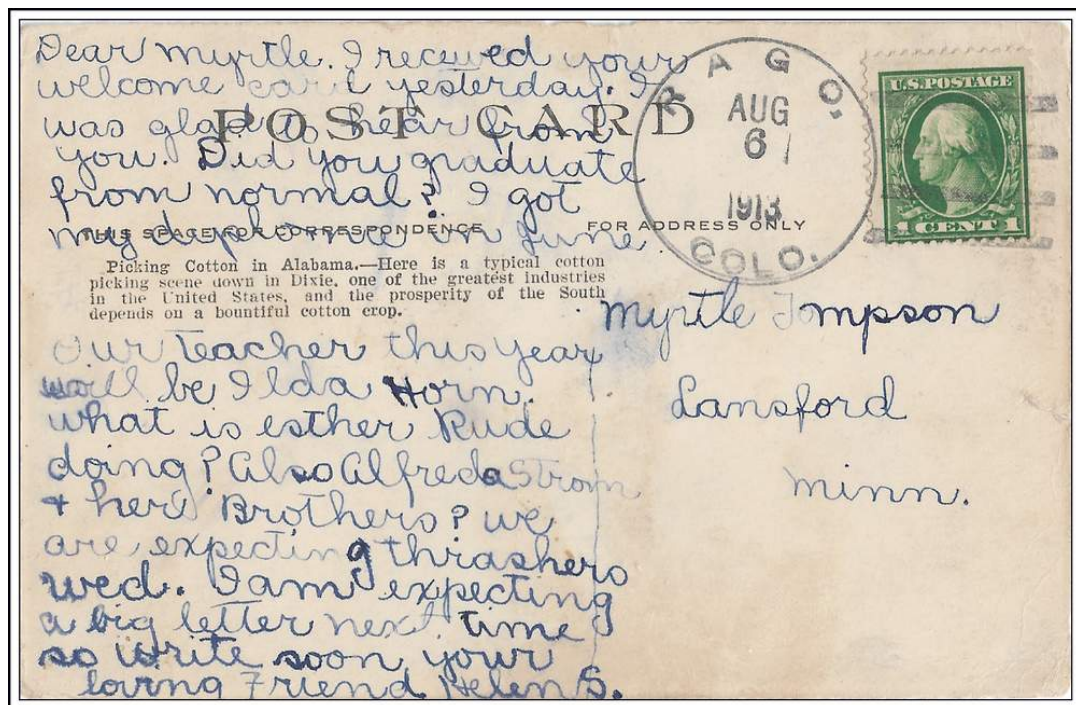 Dear Myrtle. I received your
welcome card yesterday. I
was glad to hear from
you. Did you graduate
from normal? I got
my diploma in June
POST CARD
THIS SPACE FOR CORRESPONDENCE
Picking Cotton in Alabama.—Here is a typical cotton
picking scene down in Dixie, one of the greatest industries
in the United States, and the prosperity of the South
depends on a bountiful cotton crop.
Our Teacher this year
will be Ilda Horn.
what is esther Rude
doing? Also Alfreda Strom
+ her Brothers? we
are expecting thrashers
wed. I am expecting
a big letter next time
so write soon your
loving Friend Helen S.
AGO,
AUG
6
1913
COLO.
U.S. POSTAGE
1 CENT 1
FOR ADDRESS ONLY
Myrtle Tompson
Lansford
minn.